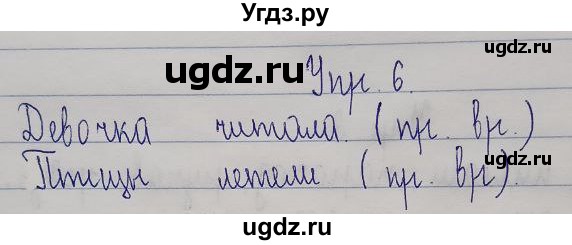 Угдз.ру
ugdz.ru
ugdz.ru
Упр. 6.
Девочка читала. (пр. вр.)
ugdz.ru
Птицы летели (пр. вр).
ugdz.ru
ugdz.ru